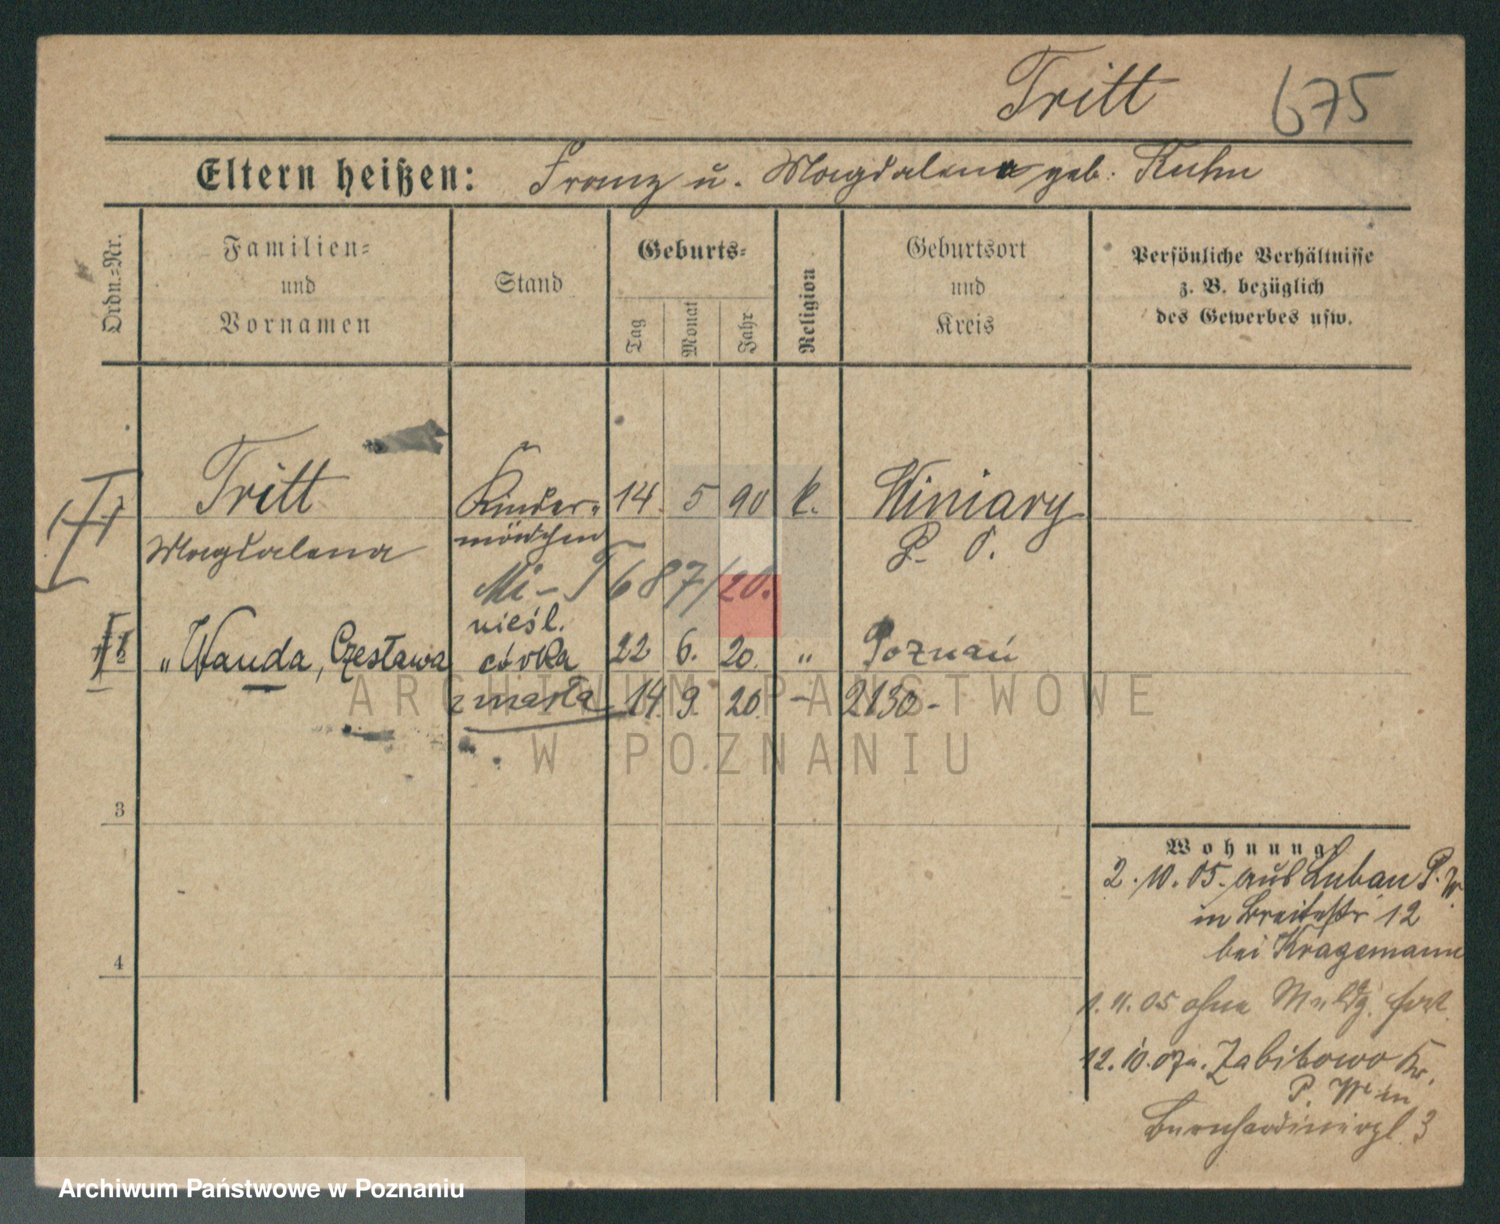 Tritt 675
Eltern heißen: Franz u. Magdalena geb. Kuhn
Ordn.-Nr.
Familien-
und
Vornamen
Stand
Geburts-
Tag
Monat
Jahr
Religion
Geburtsort
und
Kreis
Persönliche Verhältnisse
z. B. bezüglich
des Gewerbes usw.
Tritt Kinder- 14. 5 90 k. Winiary
Magdalena mädchen P. O.
Mi-T 687/20.
nieśl.
" Wanda, Czesława córka 22 6. 20. " Poznań
zmarła 14. 9. 20. - 2130-
ARCHIWUM PAŃSTWOWE
W POZNANIU
3
4
Wohnung
2. 10. 05. aus Luban P. W.
in Breitestr 12
bei Kragemann
1. 11. 05 ohne Meldg. fort.
12. 10. 07 a. Zabikowo Kr.
P. W. in
Bernhardinerpl. 3
Archiwum Państwowe w Poznaniu